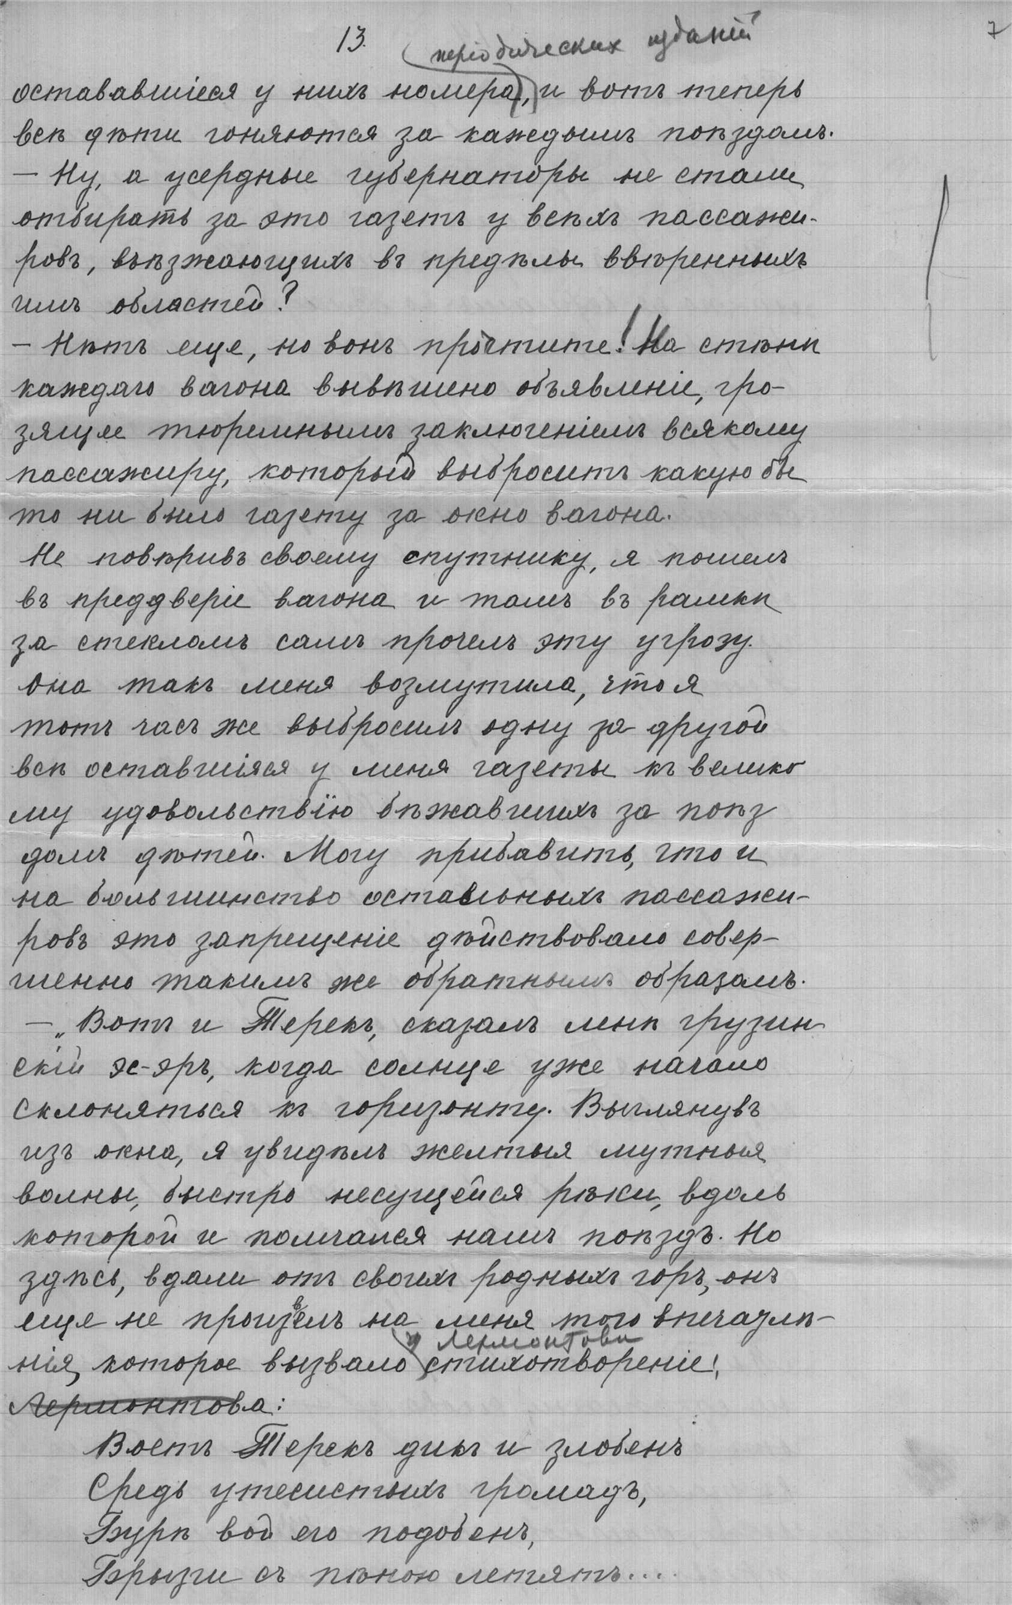 13.
7
періодическихъ изданій
остававшіеся у нихъ номера, и вотъ теперь
всѣ дѣти гоняются за каждымъ поѣздомъ.
— Ну, а усердные губернаторы не стали
отбирать за это газетъ у всѣхъ пассажи-
ровъ, въѣзжающихъ въ предѣлы ввѣренныхъ
имъ областей?
— Нѣтъ еще, но вонъ прочтите! На стѣнѣ
каждаго вагона вывѣшено объявленіе, гро-
зящее тюремнымъ заключеніемъ всякому
пассажиру, который выброситъ какую бы
то ни было газету за окно вагона.
Не повѣривъ своему спутнику, я пошелъ
въ преддверіе вагона и тамъ въ рамкѣ
за стекломъ самъ прочелъ эту угрозу.
Она такъ меня возмутила, что я
тотъ часъ же выбросилъ одну за другой
всѣ оставшіяся у меня газеты къ велико
му удовольствію бѣжавшихъ за поѣз
домъ дѣтей. Могу прибавить, что и
на большинство остальныхъ пассажи-
ровъ это запрещеніе дѣйствовало совер-
шенно такимъ же обратнымъ образомъ.
— „Вотъ и Терекъ, сказалъ мнѣ грузин
скій эс-эръ, когда солнце уже начало
склоняться къ горизонту. Выглянувъ
изъ окна, я увидѣлъ желтыя мутныя
волны, быстро несущейся рѣки, вдоль
которой и помчался нашъ поѣздъ. Но
здѣсь, вдали отъ своихъ родныхъ горъ, онъ
еще не произвелъ на меня того впечатлѣ-
Лермонтова
нія, которое вызвало стихотвореніе!
Лермонтова:
Воетъ Терекъ дикъ и злобенъ
Средь утесистыхъ громадъ,
Бурѣ вой его подобенъ,
Брызги съ пѣною летятъ....